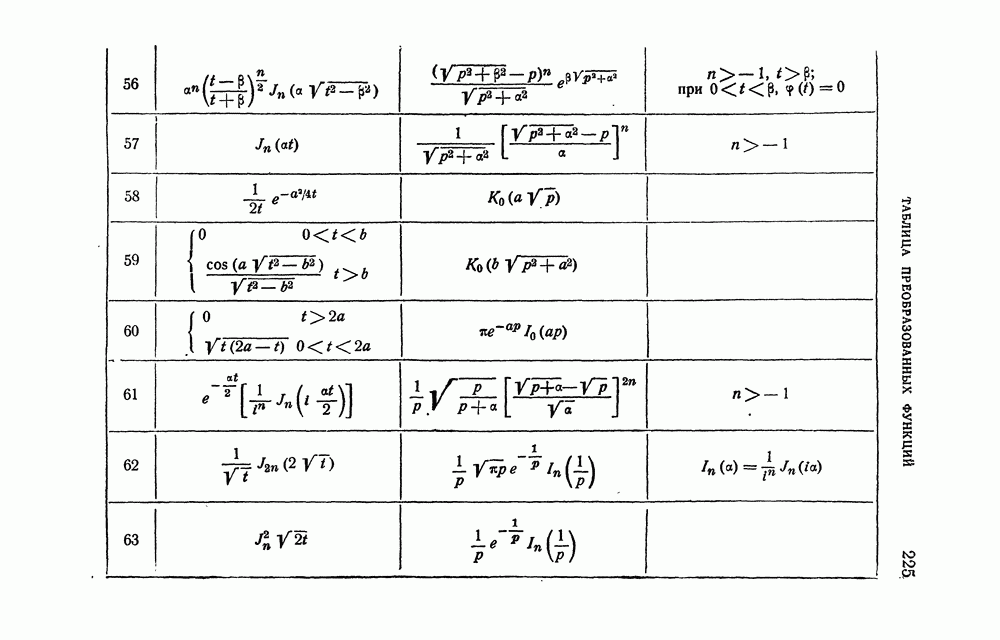 56 αⁿ((t − β)/(t + β))^(n/2) Jₙ (α √(t² − β²)) (√(p² + β²) − p)ⁿ / √(p² + α²) e^(β√(p² + α²)) n > − 1, t > β;
при 0 < t < β, φ (t) = 0
57 Jₙ (αt) 1/√(p² + α²) [(√(p² + α²) − p)/α]ⁿ n > − 1
58 1/(2t) e^(−a²/4t) K₀ (a √p)
59 { 0 0 < t < b
cos (a √(t² − b²))/√(t² − b²) t > b K₀ (b √(p² + a²))
60 { 0 t > 2a
√(t (2a − t)) 0 < t < 2a πe^(−ap) I₀ (ap)
61 e^(−αt/2) [1/iⁿ Jₙ (i αt/2)] 1/p √(p/(p + α)) [(√(p + α) − √p)/√α]^(2n) n > − 1
62 1/√t J₂ₙ (2 √t) 1/p √(πp) e^(−1/p) Iₙ (1/p) Iₙ (α) = 1/iⁿ Jₙ (iα)
63 Jₙ² √(2t) 1/p e^(−1/p) Iₙ (1/p)
ТАБЛИЦА ПРЕОБРАЗОВАННЫХ ФУНКЦИЙ
225